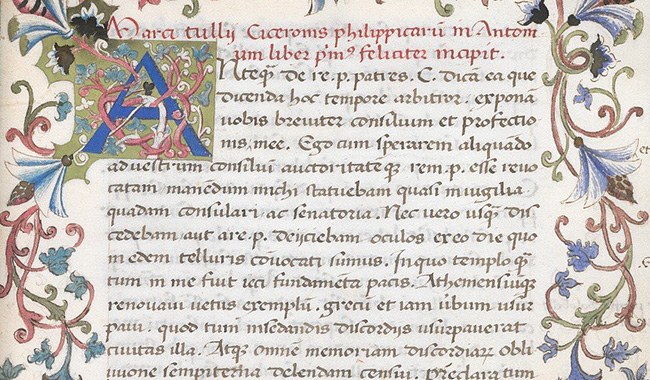 Marci tullij Ciceronis philippicarū in Antoni
um liber pͥmꝰ feliciter incipit.
ANteqȝ de re.p. patres.C. dicā ea que
dicenda hoc tempore arbitror. exponā
uobis breuiter consilium et profectio
nis, mee. Ego cum sperarem aliquādo
ad uestrum consiluī auctoritateqȝ rem.p. esse reuo
catam manēdum michi statuebam quasi in uigilia
quadam consulari ac senatoria. Nec uero usqȝ dis
cedebam aut a re.p. deijciebam oculos ex eo die quo
in edem telluris cōuocati sumus. In quo templo qȝ
tum in me fuit ieci fundamēta pacis. Atheniensiuqȝ
renouaui uetus exemplū. grecū et iam ūbum usur
paui. quod tum in sedandis discordijs usurpauerat
ciuitas illa. Atqȝ omnē memoriam discordiaꝝ obli
uione sempiterna delendam censui. Preclara tum